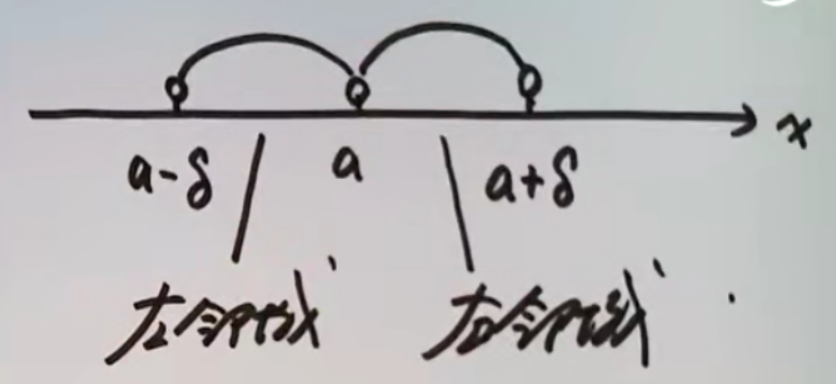 x
a-δ a a+δ
左邻域 右邻域